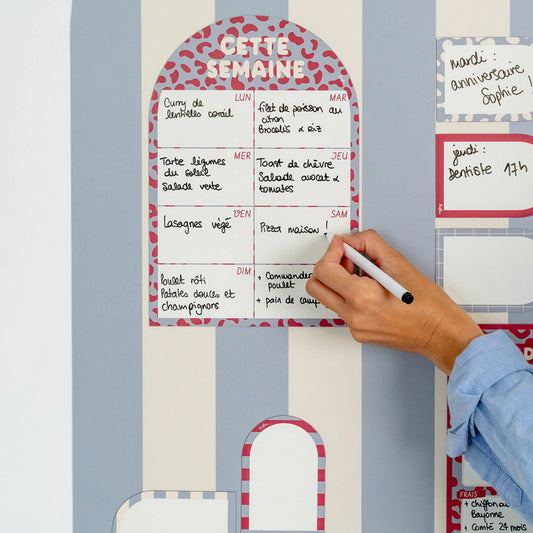 CETTE
SEMAINE
LUN
Curry de
lentilles corail
MAR
Filet de poisson au
citron
Brocolis & riz
MER
Tarte légumes
du soleil
Salade verte
JEU
Toast de chèvre
Salade avocat &
tomates
VEN
Lasagnes végé
SAM
Pizza maison !
DIM
Poulet rôti
Patates douces et
champignons
+ Commander
poulet
+ pain de cam
mardi :
anniversaire
Sophie !
jeudi :
Dentiste 17h
D
FRAIS
+ chiffon
Bayonne
+ Comté 24 mois